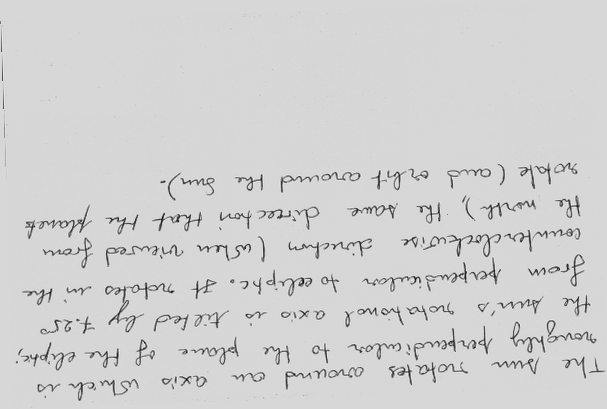 The sun rotates around an axis which is
roughly perpendicular to the plane of the eliptic;
the sun's rotational axis is tilted by 7.25°
from perpendicular to ecliptic. It rotates in the
counterclockwise direction (when viewed from
the north), the same direction that the planets
rotate (and orbit around the Sun).